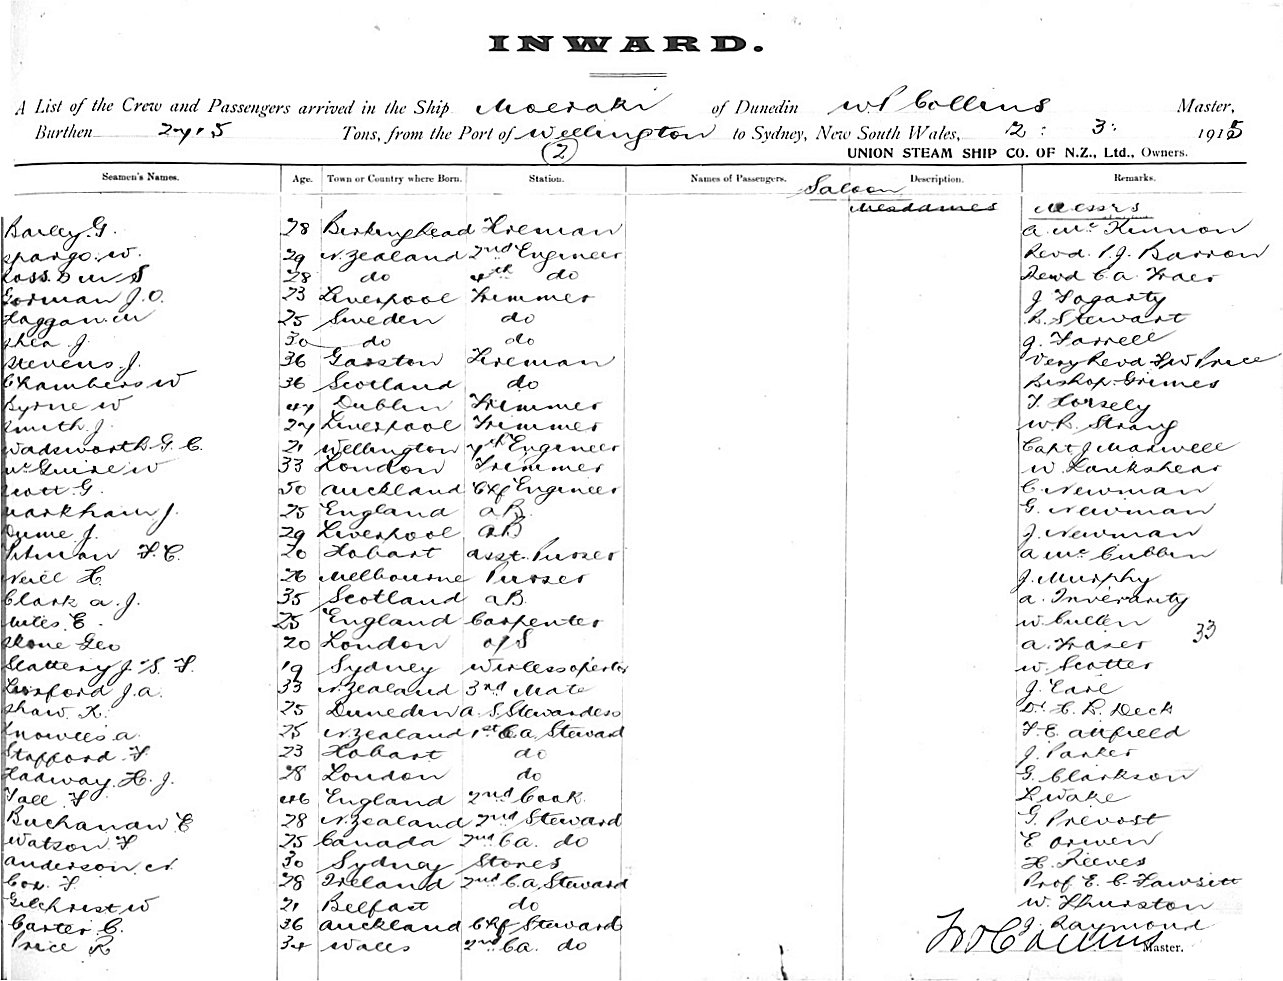 INWARD.
A List of the Crew and Passengers arrived in the Ship Moeraki of Dunedin W P Collins Master,
Burthen 2715 Tons, from the Port of Wellington to Sydney, New South Wales, 2: 3: 1915
(2)
UNION STEAM SHIP CO. OF N.Z., Ltd., Owners.
Seamen's Names. Age. Town or Country where Born. Station. Names of Passengers. Description. Remarks.
Saloon
Mesdames Messrs
Bailey G. 28 Birkinghead Fireman A McKinnon
Spargo. W. 29 N. Zealand 2nd Engineer Revd. P.J. Barron
Ross D M S 28 do 4th do Revd C A Fraer
Gorman J. O. 23 Liverpool Trimmer J Fogarty
25 Sweden do R. Stewart
Shea J. 30 do do J. Farrell
Stevens. J. 36 Garston Fireman Very Revd F W Price
Chambers W 36 Scotland do Bishop Grimes
Byrne W 44 Dublin Trimmer T Horsely
Smith J. 24 Liverpool Trimmer W R Strang
Wadsworth G. C. 21 Wellington 7th Engineer Capt J Maxwell
McGuire W 33 London Trimmer W Lankshear
Scott G. 50 Auckland Chf Engineer C Newman
Markham J. 25 England AB. G. Newman
J. 29 Liverpool AB J Newman
Pitman F. C. 20 Hobart Asst. Purser A McCubbin
Neill H. 26 Melbourne Purser J. Murphy
Clark A. J. 35 Scotland AB. A. Inverarity
Miles. E. 25 England Carpenter W Cullen
Stone Geo 20 London O/S A. Fraser 33
Slattery J. S. F. 19 Sydney Wirless opertor W. Scotter
J. A. 33 N. Zealand 3rd Mate J. Earl
Shaw K. 25 Duneden A. S. Stewardess Dr H. R. Deck
Knowles A. 25 N. Zealand 1st Ca. Steward F. E. Allfield
Stafford. F 23 Hobart do J. Parker
Hadway. H. J. 28 London do G. Clarkson
Tall F 46 England 2nd Cook L Wake
Buchanan E 28 N. Zealand 2nd Steward G. Prevost
Watson F 25 Canada 2nd Ca. do E Orwen
Anderson 30 Sydney Stores H. Reeves
Cox. F 28 Ireland 2nd Ca. Steward Prof E. C. Fawsitt
Gilchrist W 21 Belfast do W. Thurston
Carter C. 36 Auckland Chf Steward J. Raymond
Price R 34 Wales 2nd Ca. do
W P Collins Master.